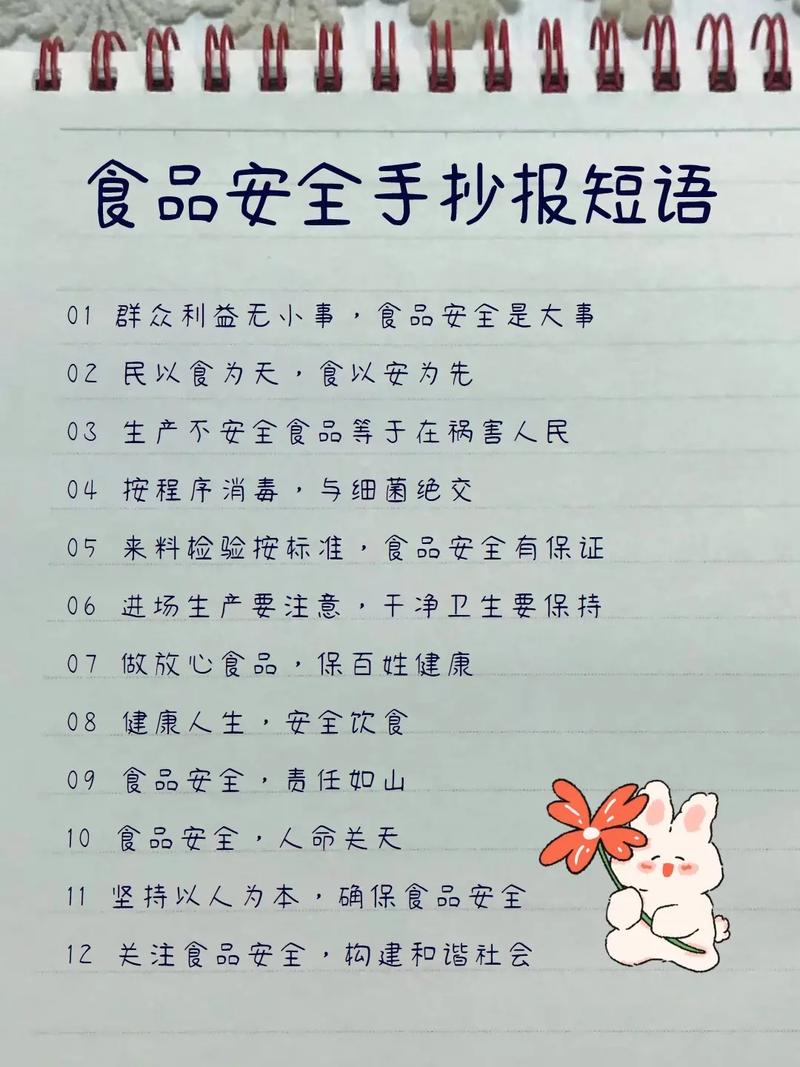 食品安全手抄报短语
01 群众利益无小事，食品安全是大事
02 民以食为天，食以安为先
03 生产不安全食品等于在祸害人民
04 按程序消毒，与细菌绝交
05 来料检验按标准，食品安全有保证
06 进场生产要注意，干净卫生要保持
07 做放心食品，保百姓健康
08 健康人生，安全饮食
09 食品安全，责任如山
10 食品安全，人命关天
11 坚持以人为本，确保食品安全
12 关注食品安全，构建和谐社会